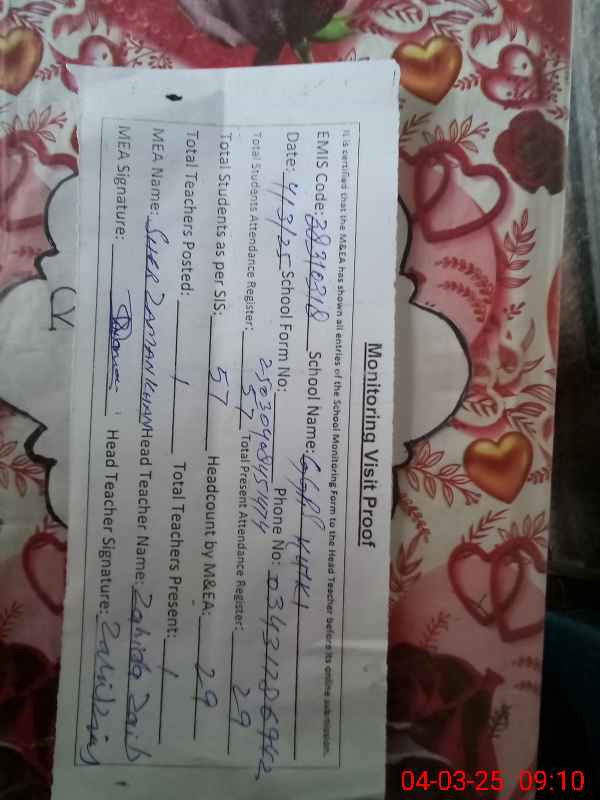 Monitoring Visit Proof
It is certified that the M&EA has shown all entries of the School Monitoring Form to the Head Teacher before its online submission.
EMIS Code: 38310318 School Name:
Date: 4/3/25 School Form No: 250304084514714 Phone No: 03431286962
Total Students Attendance Register: 57 Total Present Attendance Register: 29
Total Students as per SIS: 57 Headcount by M&EA: 29
Total Teachers Posted: 1 Total Teachers Present: 1
MEA Name: SHER ZAMAN KHAN Head Teacher Name: Zahida Zaib
MEA Signature: Head Teacher Signature:
04-03-25 09:10